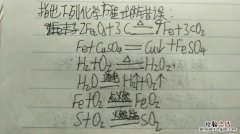 指出下列化学方程式的错误:
2Fe₂O₃+3C △ 2Fe+3CO₂
Fe+CuSO₄ = Cu↓+FeSO₄
H₂+O₂ H₂O₂
H₂O 通电 H₂↑+O₂↑
Fe+O₂ 点燃 FeO₂
S+O₂ 点燃 SO₂